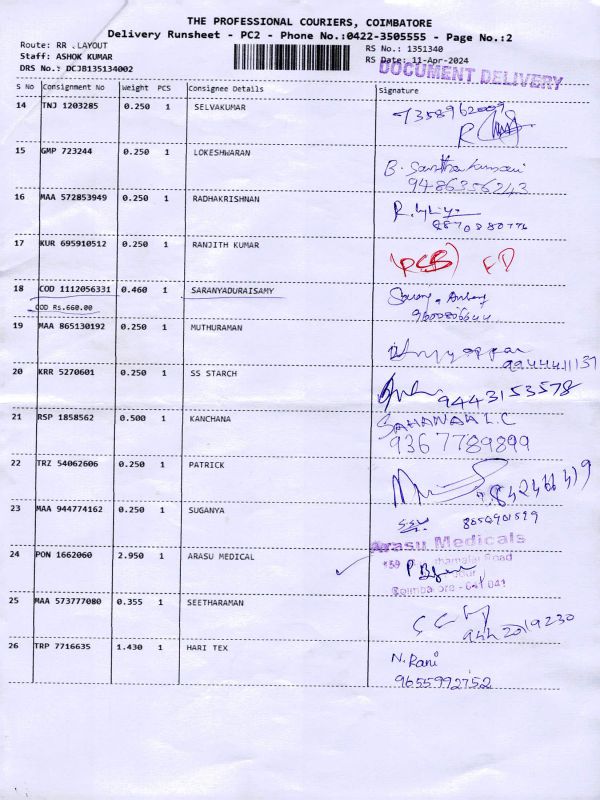 THE PROFESSIONAL COURIERS, COIMBATORE
Delivery Runsheet - PC2 - Phone No.:0422-3505555 - Page No.:2
Route: RR .LAYOUT RS No.: 1351340
Staff: ASHOK KUMAR RS Date: 11-Apr-2024
DRS No.: DCJB135134002 DOCUMENT DELIVERY
S No Consignment No Weight PCS Consignee Details Signature
14 TNJ 1203285 0.250 1 SELVAKUMAR 7358962009
15 GMP 723244 0.250 1 LOKESHWARAN B.
9486356243
16 MAA 572853949 0.250 1 RADHAKRISHNAN R.
17 KUR 695910512 0.250 1 RANJITH KUMAR
18 COD 1112056331 0.460 1 SARANYADURAISAMY
COD Rs.660.00 9600806644
19 MAA 865130192 0.250 1 MUTHURAMAN
9944411137
20 KRR 5270601 0.250 1 SS STARCH 9443153578
21 RSP 1858562 0.500 1 KANCHANA
9367789899
22 TRZ 54062606 0.250 1 PATRICK
23 MAA 944774162 0.250 1 SUGANYA
24 PON 1662060 2.950 1 ARASU MEDICAL Arasu Medicals
Road
Coimbatore - 641 041
25 MAA 573777080 0.355 1 SEETHARAMAN
26 TRP 7716635 1.430 1 HARI TEX N. Rani
9655992752